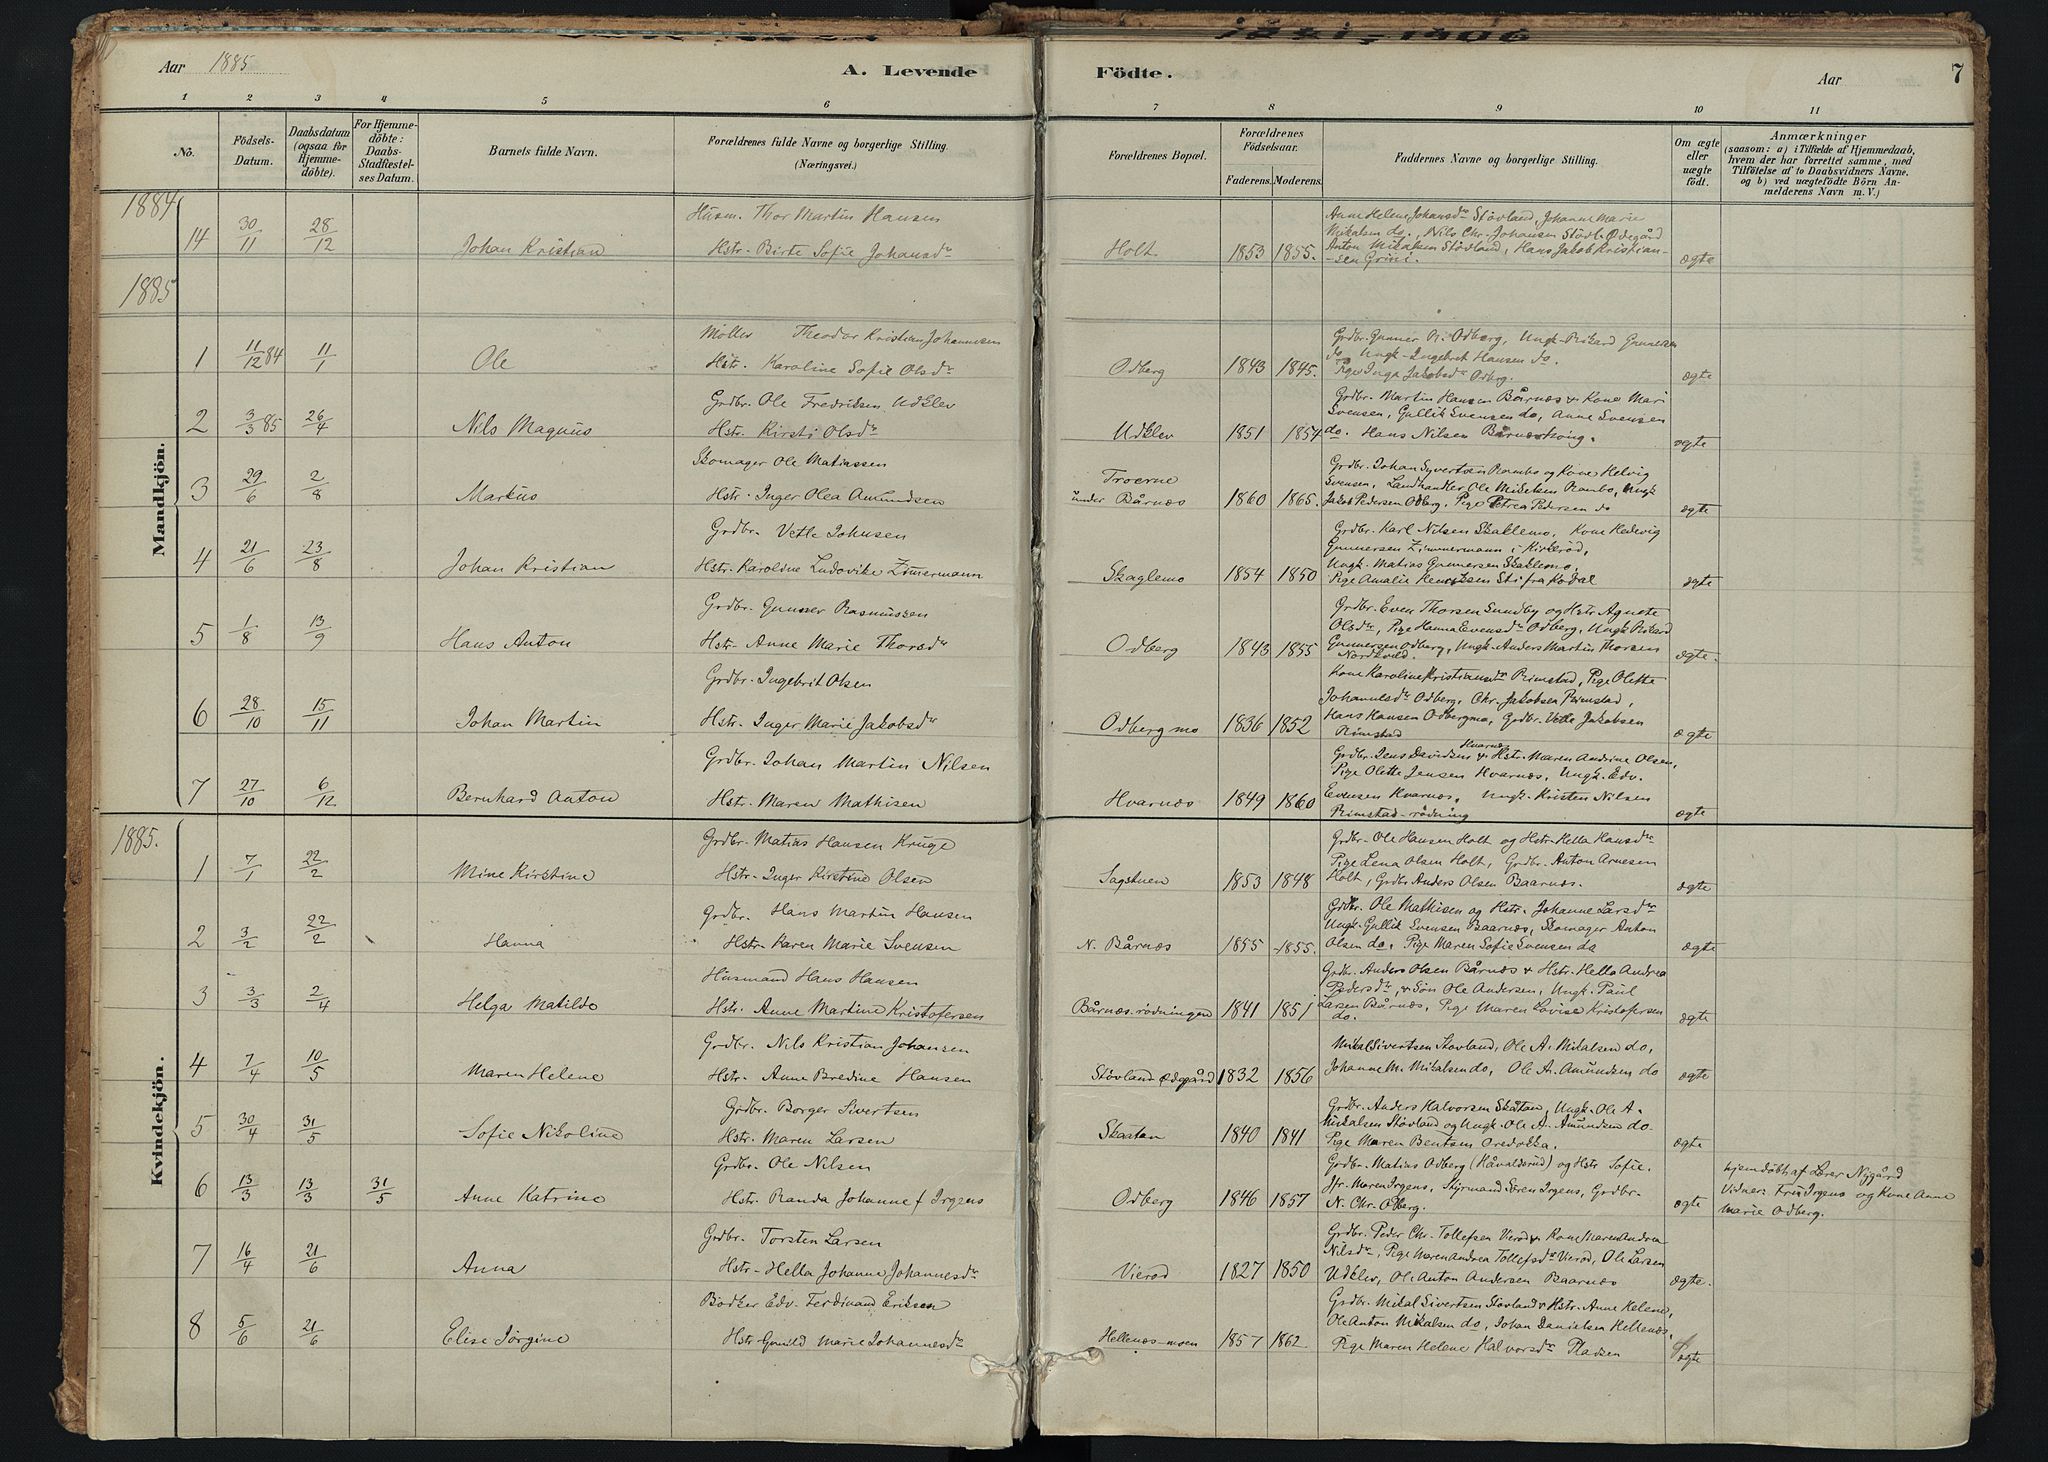 Aar 1885
A. Levende
Födte.
Aar
7
1 2 3 4 5 6 7 8 9 10 11
No.
Födsels-
Datum.
Daabsdatum
(ogsaa for
Hjemme-
döbte).
For Hjemme-
döbte:
Daabs-
Stadfæstel-
ses Datum.
Barnets fulde Navn.
Forældrenes fulde Navne og borgerlige Stilling.
(Næringsvei.)
Forældrenes Bopæl.
Forældrenes
Födselsaar.
Faderens. Moderens.
Faddernes Navne og borgerlige Stilling.
Om ægte
eller
uægte
födt.
Anmærkninger
(saasom: a) i Tilfælde af Hjemmedaab,
hvem der har forrettet samme, med
Tilföielse af to Daabsvidners Navne.
og b) ved uægtefödte Börn An-
melderens Navn m. V.)
Mandkjön.
1884
14 30/11 28/12 Johan Kristian
Husm. Thor Martin Hansen
Hstr. Birte Sofie Johansdr
Holt 1853 1855.
Anne Helene Johansdr Stövland, Johanne Marie
Mikalsen do., Nils Chr. Johansen Stövl. Ödegård
Anton Mikalsen Stövland, Hans Jakob Kristian-
-sen Grini.
ægte
1885
1 11/12 84 11/1 Ole
Möller Theodor Kristian Johannesen
Hstr. Karoline Sofie Olsdr
Odberg 1843 1845.
Grdbr. Gunner R. Odberg, Ungk. Rikard Gunnersen
do, Ungk. Ingebret Hansen do.
Pige Inga Jakobsdr Odberg.
ægte
2 3/3 85 26/4 Nils Magnus
Grdbr. Ole Fredriksen Udklev
Hstr. Kirsti Olsdr
Udklev 1851 1854
Grdbr. Martin Hansen Bårnæs & Kone Mari
Svensen, Gullik Svensen do, Anne Svensen
do. Hans Nilsen Bårnæs
ægte
3 29/6 2/8 Markus
Skomager Ole Matiassen
Hstr. Inger Olea Amundsen
Troerne
under Bårnæs 1860 1865.
Grdbr. Johan Syvertsen Rambo og Kone Helvig
Svensen, Landhandler Ole Mikelsen Rambo, Ungk
Jakob Pedersen Odberg, Pige Petrea Pedersen do
ægte
4 21/6 23/8 Johan Kristian
Grdbr. Vetle Johnsen
Hstr. Karoline Ludovike Zimermann
Skaglemo 1854 1850
Grdbr. Karl Nilsen Skaklemo, Kone Hedevig
Gunnersen Zimmermann i Kirkeröd,
Ungk. Matias Gunnersen Skaklemo,
Pige Amalie Henriksen Sti fra Kodal
ægte
5 1/8 13/9 Hans Anton
Grdbr. Gunner Rasmussen
Hstr. Anne Marie Thorsdr
Odberg 1843 1855
Grdbr. Even Thorsen Sundby og Hstr Agnete
Olsdr, Pige Hanna Evensdr Odberg, Ungk. Rikard
Gunnersen Odberg, Ungk. Anders Martin Thorsen
Nordkveld.
ægte.
6 28/10 15/11 Johan Martin
Grdbr. Ingebrit Olsen
Hstr. Inger Marie Jakobsdr
Odbergmo 1836 1852
Kone Karoline Kristiansdr Rimstad, Pige Olette
Johannesdr Odberg, Chr. Jakobsen Rimstad,
Hans Hansen Odbergmo, Grdbr. Vetle Jakobsen
Rimstad
ægte
7 27/10 6/12 Bernhard Anton
Grdbr. Johan Martin Nilsen
Hstr. Maren Mathisen
Hvarnæs 1849 1860
Hvarnæs
Grdbr. Jens Davidsen & Hstr. Maren Andrine Olsen,
Pige Olette Jensen Hvarnæs, Ungk. Edv.
Evensen Hvarnæs, Ungk. Kristen Nilsen
Rimstad-rödning
ægte
Kvindekjön.
1885.
1 7/1 22/2 Mine Kirstine
Grdbr. Matias Hansen Kruge
Hstr. Inger Kirstine Olsen
Sagstuen 1853 1848
Grdbr. Ole Hansen Holt og Hstr. Hella Hansdr
Pige Lena Olsen Holt, Grdbr. Anton Arnesen
Holt, Grdbr Anders Olsen Baarnæs.
ægte
2 3/2 22/2 Hanna
Grdbr. Hans Martin Hansen
Hstr. Karen Marie Svensen
N. Bårnæs 1855 1855.
Grdbr. Ole Mathisen og Hstr. Johanne Larsdr
Ungk. Gullik Svensen Baarnæs, Skomager Anton
Olsen do, Pige Maren Sofie Svensen do
ægte
3 3/3 2/4 Helga Matilde
Husmand Hans Hansen
Hstr. Anne Martine Kristofersen
Bårnæs-rödningen 1841 1851
Grdbr. Anders Olsen Bårnæs & Hstr. Hella Andrea
Pedersdr, & Sön Ole Andersen, Ungk. Paul
Larsen Bårnæs, Pige Maren Lovise Kristofersen
do.
ægte
4 7/4 10/5 Maren Helene
Grdbr. Nils Kristian Johansen
Hstr. Anne Bredine Hansen
Stövland ödegård 1832 1856
Mikal Sivertsen Stövland, Ole A. Mikalsen do,
Johanne M. Mikalsen do, Ole A. Amundsen do
ægte
5 30/4 31/5 Sofie Nikoline
Grdbr. Borger Sivertsen
Hstr. Maren Larsen
Skaatan 1840 1841
Grdbr. Anders Halvorsen Skåtan, Ungk. Ole A.
Mikalsen Stövland og Ungk. Ole A. Amundsen do.
Pige Maren Bentsen
ægte
6 13/3 13/3 31/5 Anne Katrine
Grdbr. Ole Nilsen
Hstr. Randa Johanne f Irgens
Odberg 1846 1857
Grdbr. Matias Odberg (Håvaldsrud) og Hstr Sofie.
Jfr. Maren Irgens, Styrmand Sören Irgens, Grdbr.
N. Chr. Odberg.
ægte
hjemdöbt af Lærer Nygård
Vidner: Fru Irgens og Kone Anne
Marie Odberg.
7 16/4 21/6 Anna
Grdbr. Torsten Larsen
Hstr. Hella Johanne Johannesdr
Vieröd 1827 1850
Grdbr. Peder Chr. Tollefsen Vieröd & Kone Maren Andrea
Nilsdr, Pige Maren Andrea Tollefsdr Vieröd, Ole Larsen
Udklev, Ole Anton Andersen Baarnæs
ægte.
8 5/6 21/6 Elise Jörgine
Bödker Edv. Ferdinand Eriksen
Hstr Gunild Marie Johannesdr
Hellenæs-moen 1857 1862.
Grdbr. Mikal Sivertsen Stövland & Hstr. Anne Helene,
Ole Anton Mikalsen do, Johan Danielsen Hellenæs,
Pige Maren Helene Halvorsdr Pladsen
ægte